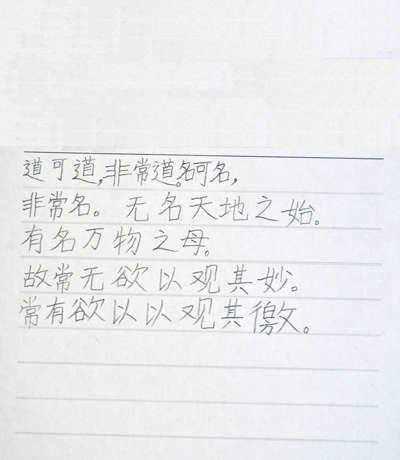 道可道,非常道。名可名,
非常名。无名天地之始。
有名万物之母。
故常无欲以观其妙。
常有欲以以观其徼。